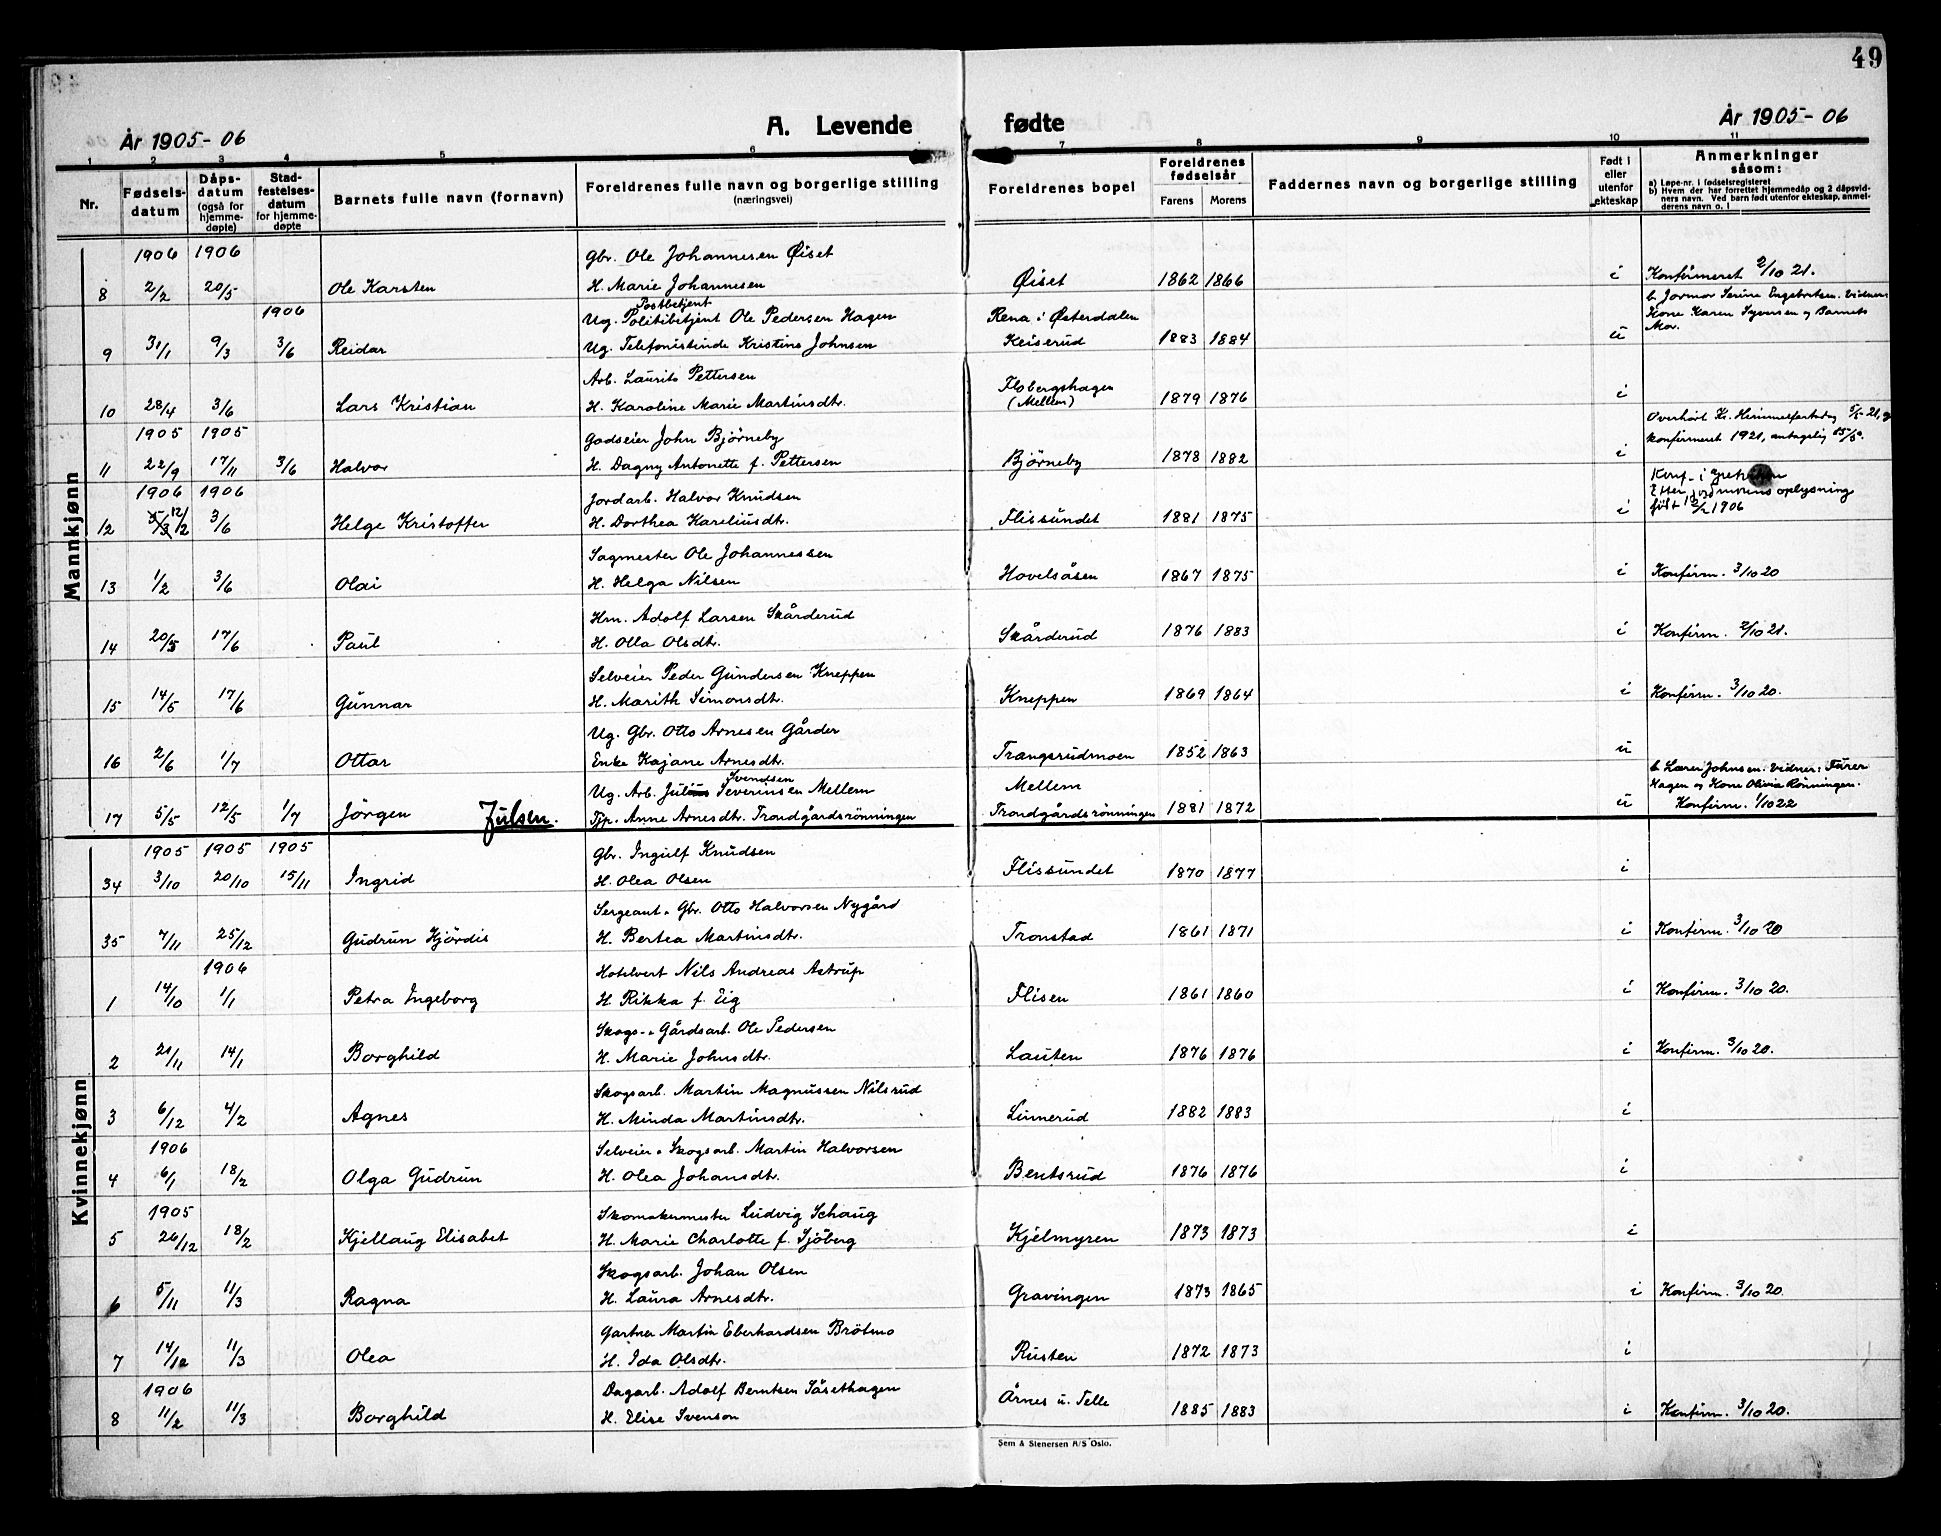 49
År 1905-06 A. Levende fødte År 1905-06
1 2 3 4 5 6 7 8 9 10 11
Nr. Fødsels-datum Dåps-datum (også for hjemme-døpte) Stad-festelses-datum for hjemme-døpte Barnets fulle navn (fornavn) Foreldrenes fulle navn og borgerlige stilling (næringsvei) Foreldrenes bopel Foreldrenes fødselsår Farens Morens Faddernes navn og borgerlige stilling Født i eller utenfor ekteskap Anmerkninger såsom:
a) Løpe-nr. i fødselsregisteret
b) Hvem der har forrettet hjemmedåp og 2 dåpsvidners navn. Ved barn født utenfor ekteskap, anmelderens navn o. l
Mannkjønn
1906 1906 Gbr. Ole Johannesen Øiset
8 2/2 20/5 Ole Karsten H. Marie Johannesen Øiset 1862 1866 i Konfirmeret 2/10 21.
1906 Ug. Politibetjent Postbetjent Ole Pedersen Hagen Rena i Østerdalen b. Jormor Serine Engebretsen. Vidner: Kone Karen Syversen og Barnets Mor.
9 31/1 9/3 3/6 Reidar Ug. Telefonistinde Kristine Johnsen Keiserud 1883 1884 u
Arb. Laurits Pettersen Flobergshagen
10 28/4 3/6 Lars Kristian H. Karoline Marie Martinsdtr. (Mellem) 1879 1876 i
1905 1905 Godseier John Björneby Overhört Kr. Himmelfartsdag 5/5-21, og
11 22/9 17/11 3/6 Halvor H. Dagny Antonette f. Pettersen Björneby 1878 1882 i konfirmeret 1921, antagelig
1906 1906 Jordarb. Halvor Knudsen Konf. i
12 5/3 12/2 3/6 Helge Kristoffer H. Dorthea Kareliusdtr. Flissundet 1881 1875 i Efter jordmorens oplysning født 12/2 1906
Sagmester Ole Johannessen
13 1/2 3/6 Olai H. Helga Nilsen Hovelsåsen 1867 1875 i Konfirm. 3/10 20
Hm. Adolf Larsen Skårderud
14 20/5 17/6 Paul H. Olla Olsdtr. Skårderud 1876 1883 i Konfirm. 2/10 21.
Selveier Peder Gundersen Kneppen
15 14/5 17/6 Gunnar H. Marith Simonsdtr. Kneppen 1869 1864 i Konfirm. 3/10 20.
Ug. Gbr. Otto Arnesen Gårder
16 2/6 1/7 Ottar Enke Kajane Arnesdtr. Trangsrudmoen 1852 1863 u
Ug. Arb. Julius Severinsen Svendsen Mellem Mellem b. Lærer Johnsen. Vidner: Fører Hagen og Kone Olivia Rönningen.
17 5/5 12/5 1/7 Jörgen Julsen. Tjp. Anne Arnesdtr. Trondgårdsrönningen Trondgårdsrönningen 1881 1872 u Konfirm. 1/10 22
Kvinnekjønn
1905 1905 1905 Gbr. Ingulf Knudsen
34 3/10 20/10 15/11 Ingrid H. Olea Olsen Flissundet 1870 1877 i
Sergeant o Gbr. Otto Halvorsen Nygård
35 7/11 25/12 Gudrun Hjördis H. Bertea Martinsdtr. Tronstad 1861 1871 i Konfirm. 3/10 20
1906 Hotelvert Nils Andreas Astrup
1 14/10 1/1 Petra Ingeborg H. Rikka f. Eig Flisen 1861 1860 i Konfirm. 3/10 20.
Skogs- o Gårdsarb. Ole Pedersen
2 21/11 14/1 Borghild H. Marie Johnsdtr. Lauten 1876 1876 i Konfirm. 3/10 20.
Skogsarb. Martin Magnussen Nilsrud
3 6/12 4/2 Agnes H. Minda Martinsdtr. Linnerud 1882 1883 i
1906 Selveier o Skogsarb. Martin Halvorsen
4 6/1 18/2 Olga Gudrun H. Olea Johansdtr. Bentsrud 1876 1876 i
1905 Skomakermester Ludvig Schaug
5 26/12 18/2 Kjellaug Elisabet H. Marie Charlotte f. Sjöberg Kjelmyren 1873 1873 i
Skogsarb. Johan Olsen
6 5/11 11/3 Ragna H. Laura Arnesdtr. Gravingen 1873 1865 i Konfirm. 3/10 20.
Gartner Martin Eberhardsen Brötmo
7 14/12 11/3 Olea H. Ida Olsdtr. Rusten 1872 1873 i
1906 Dagarb. Adolf Berntsen Såsethagen
8 11/2 11/3 Borghild H. Elise Svenson Årnes u. Telle 1885 1883 i Konfirm. 3/10 20.
Sem & Stenersen A/S Oslo.